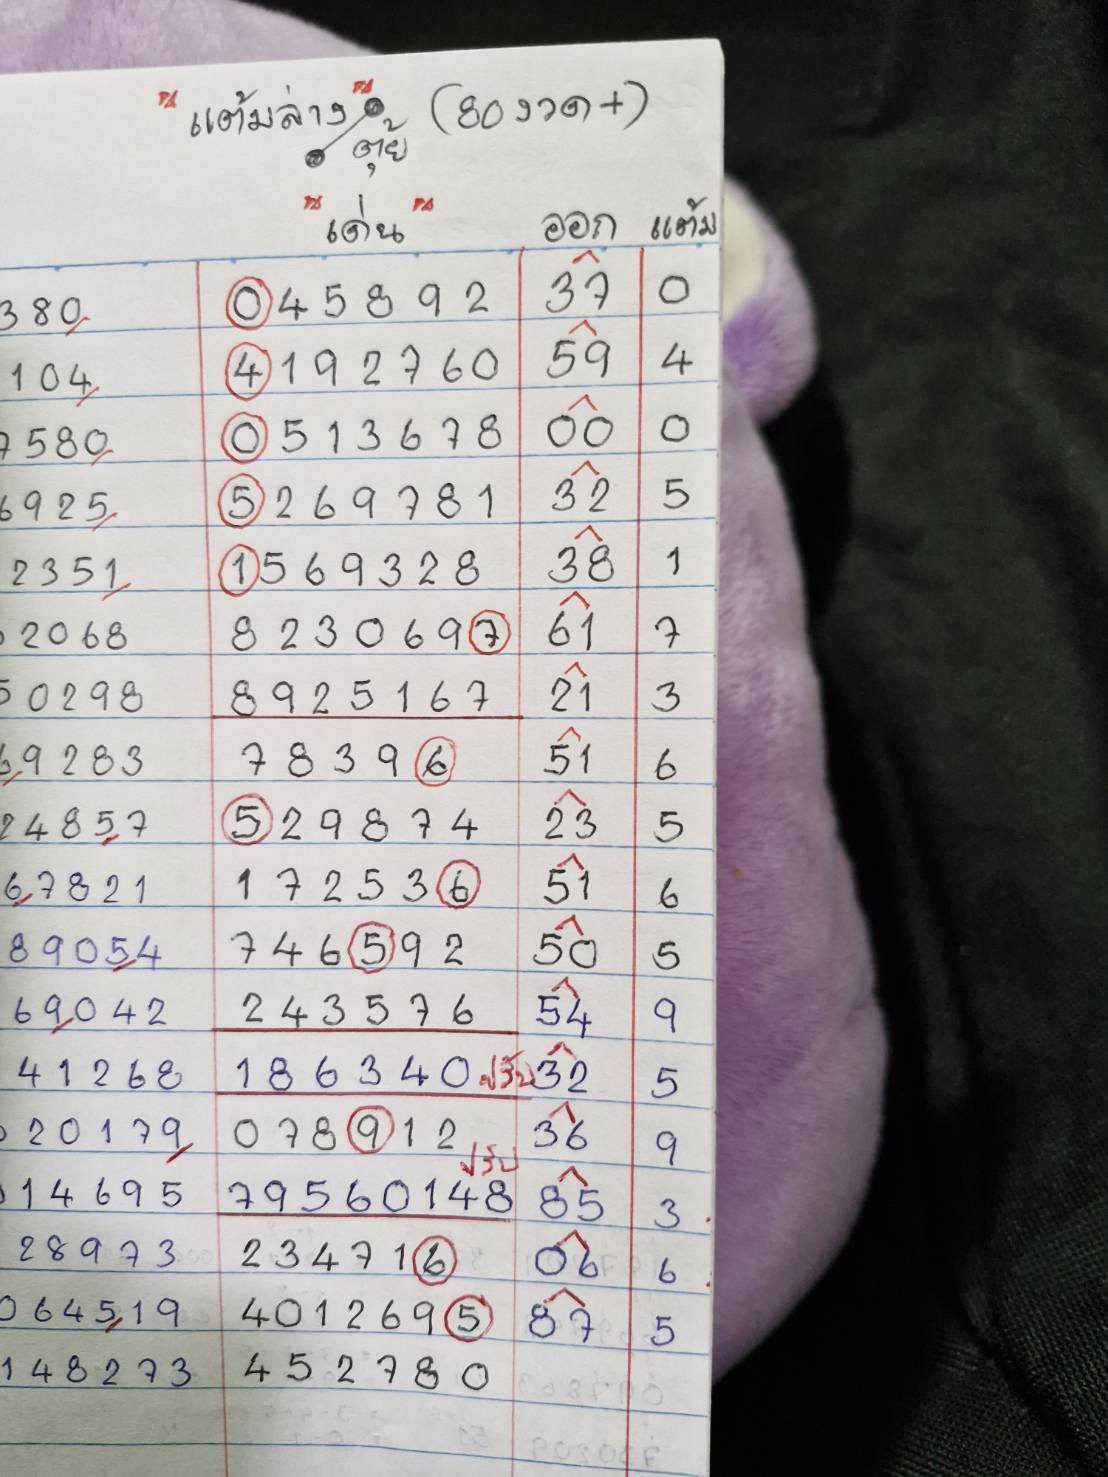 "แต้มล่าง" (80งวด+)
ตุ้ย
"เด่น" ออก แต้ม
380 045892 37 0
104 4192760 59 4
7580 0513678 00 0
6925 5269781 32 5
2351 1569328 38 1
2068 8230697 61 7
50298 8925167 21 3
69283 78396 51 6
24857 529874 23 5
67821 172536 51 6
89054 746592 50 5
69042 243576 54 9
41268 186340 ปรับ 32 5
20179 078912 36 9
ปรับ
14695 79560148 85 3
28973 234716 06 6
064519 4012695 87 5
148273 452780